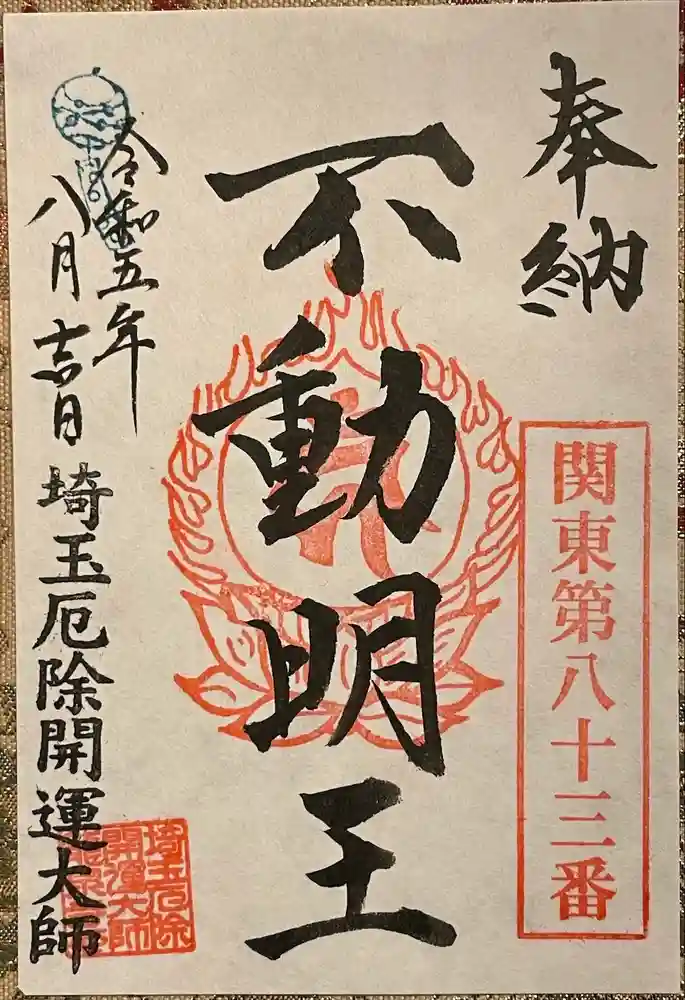 奉納
関東第八十三番
不動明王
令和五年
八月吉日
埼玉厄除開運大師
埼玉厄除
開運大師